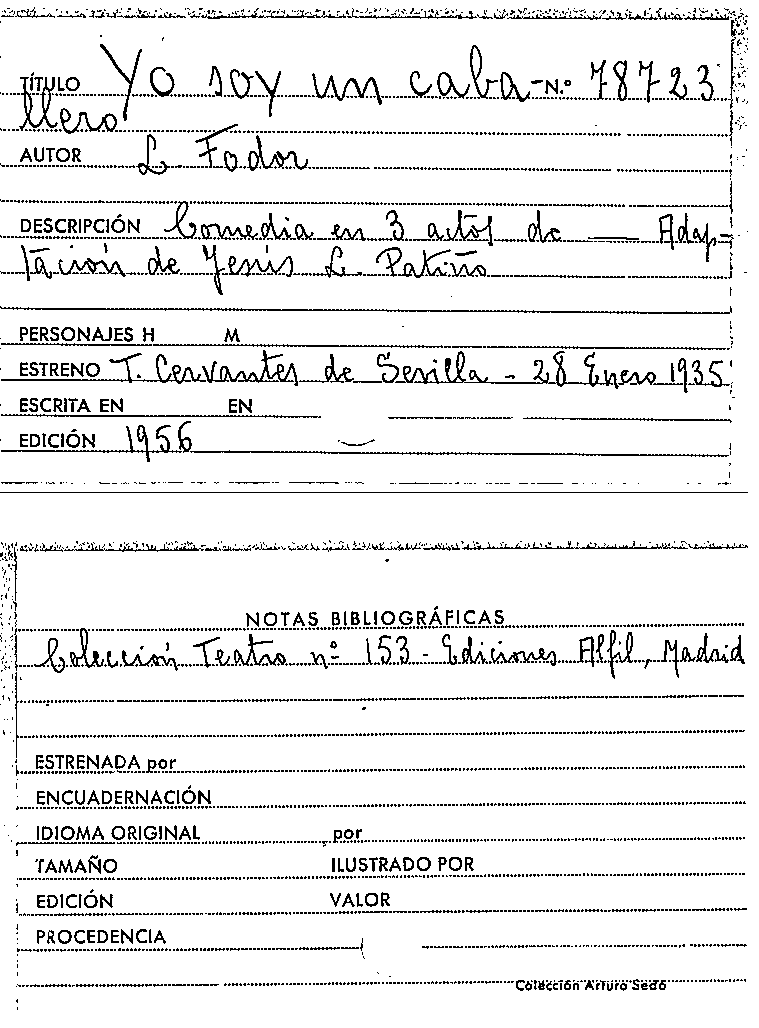 TÍTULO Yo soy un caba- N.º 78723
llero
AUTOR L. Fodor
DESCRIPCIÓN Comedia en 3 actos de — Adap-
tación de Jesús L. Patiño
PERSONAJES H M
ESTRENO T. Cervantes de Sevilla - 28 Enero 1935
ESCRITA EN EN
EDICIÓN 1956
NOTAS BIBLIOGRÁFICAS
Colección Teatro nº 153 - Ediciones Alfil, Madrid
ESTRENADA por
ENCUADERNACIÓN
IDIOMA ORIGINAL por
TAMAÑO ILUSTRADO POR
EDICIÓN VALOR
PROCEDENCIA
Colección Arturo Sedó